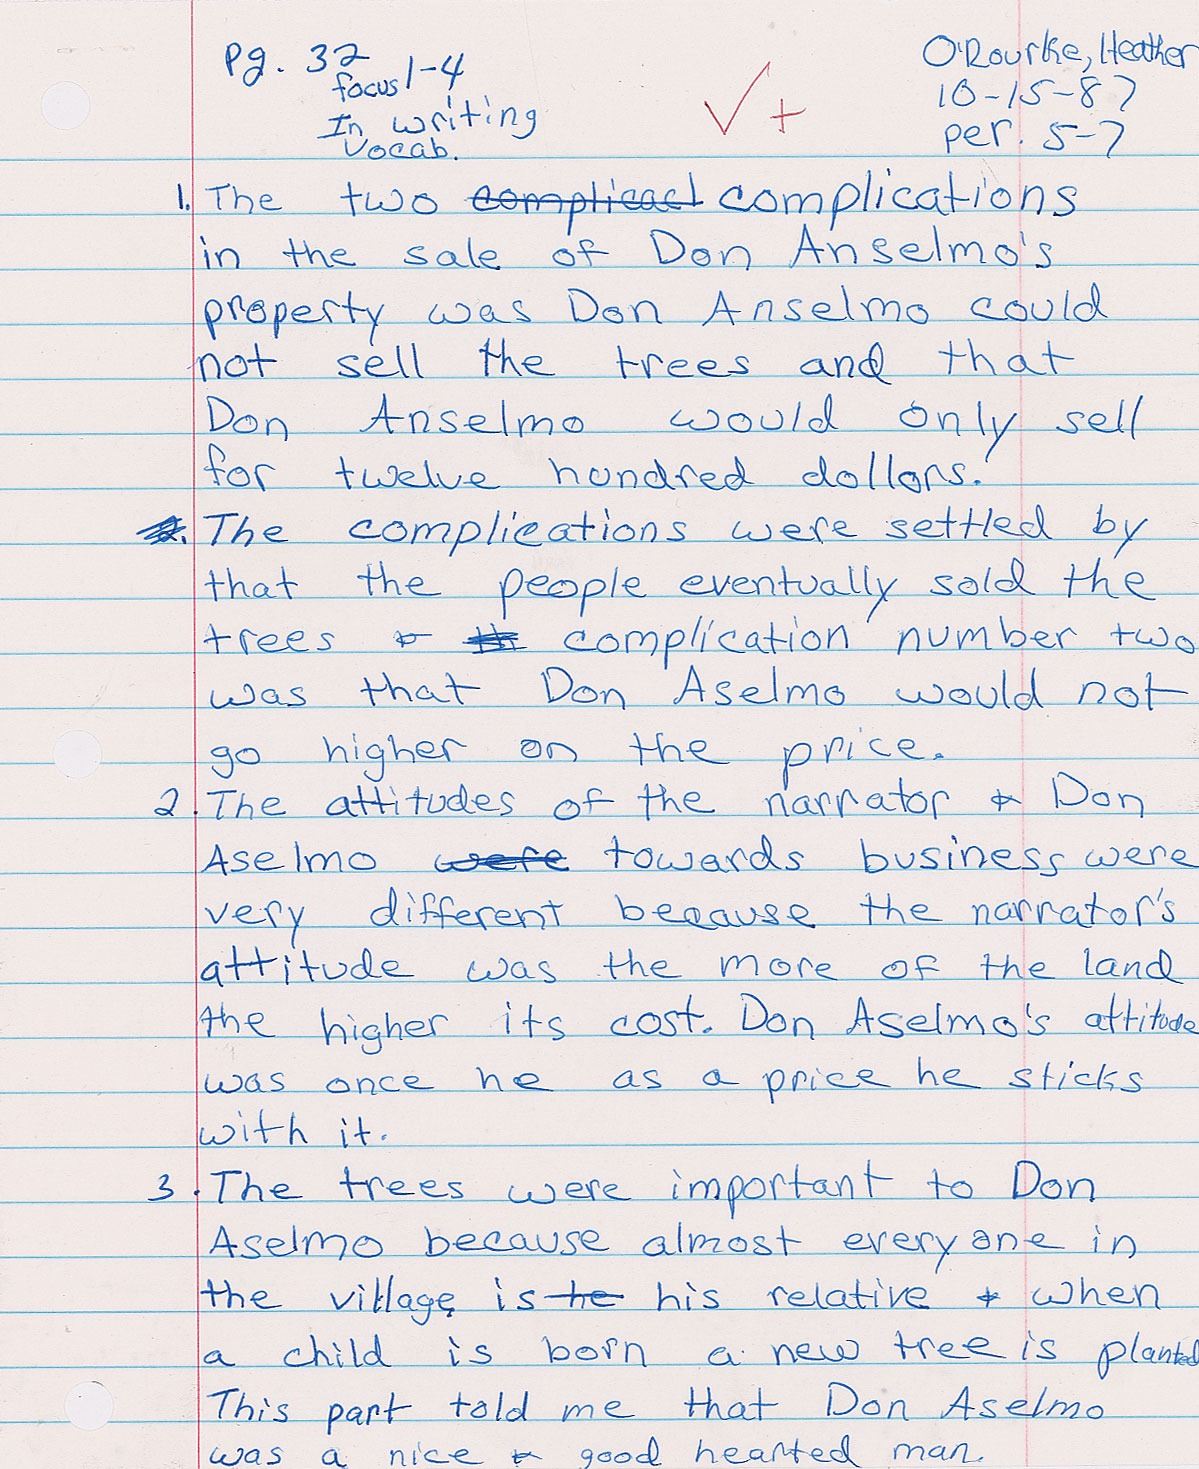 Pg. 32
focus 1-4
In writing
Vocab.
O'Rourke, Heather
10-15-87
per. 5-7
✓+
1. The two complicact complications
in the sale of Don Anselmo's
property was Don Anselmo could
not sell the trees and that
Don Anselmo would only sell
for twelve hundred dollars.
2. The complications were settled by
that the people eventually sold the
trees & complication number two
was that Don Aselmo would not
go higher on the price.
2. The attitudes of the narrator & Don
Aselmo were towards business were
very different because the narrator's
attitude was the more of the land
the higher its cost. Don Aselmo's attitude
was once he as a price he sticks
with it.
3. The trees were important to Don
Aselmo because almost everyone in
the village is he his relative & when
a child is born a new tree is planted
This part told me that Don Aselmo
was a nice & good hearted man.